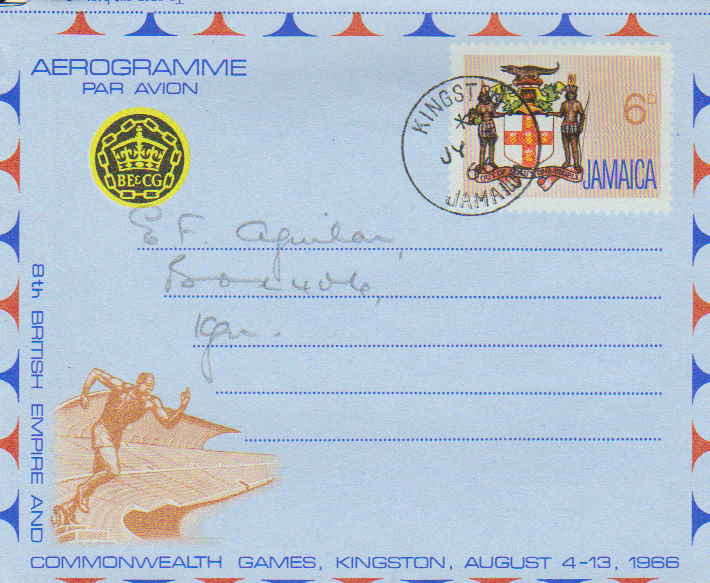 AEROGRAMME
PAR AVION
BE&CG
KINGSTON
JY
6
JAMAICA
6D
JAMAICA
E F. Aguilar,
Box 406,
Kgn.
8th BRITISH EMPIRE AND
COMMONWEALTH GAMES, KINGSTON, AUGUST 4-13, 1966